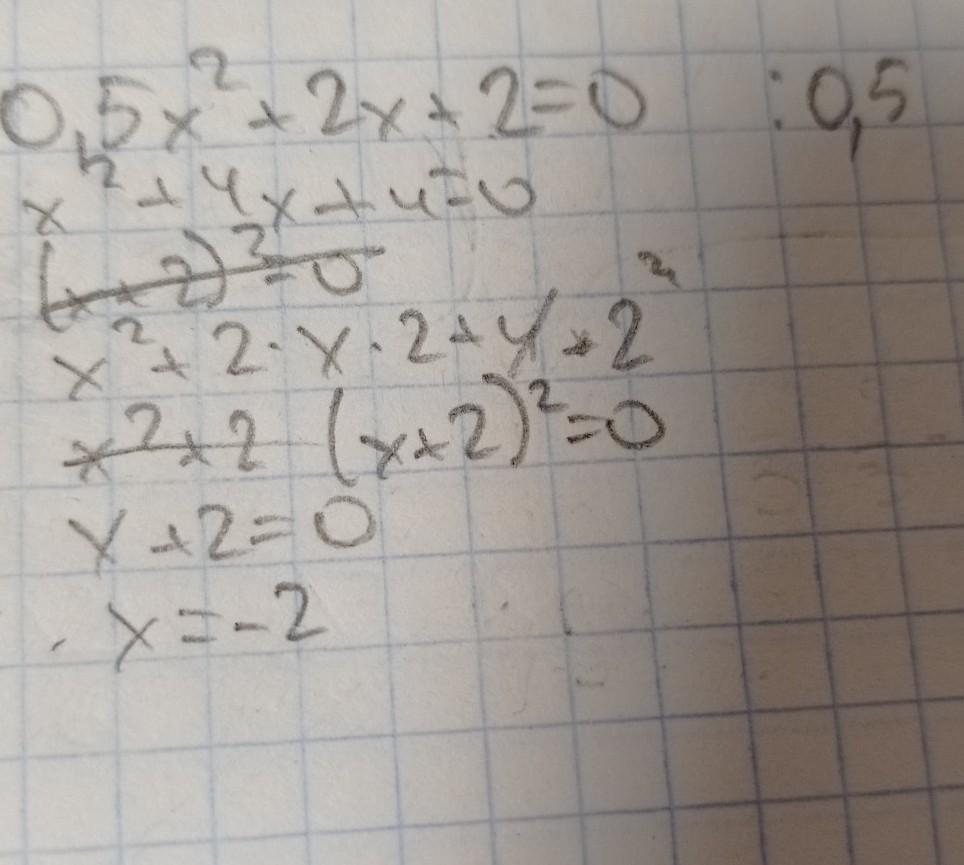 0,5x² + 2x + 2 = 0 : 0,5
x² + 4x + 4 = 0
(x + 2)² = 0
x² + 2 · x · 2 + 4 + 2²
x² + 2 (x + 2)² = 0
x + 2 = 0
x = -2